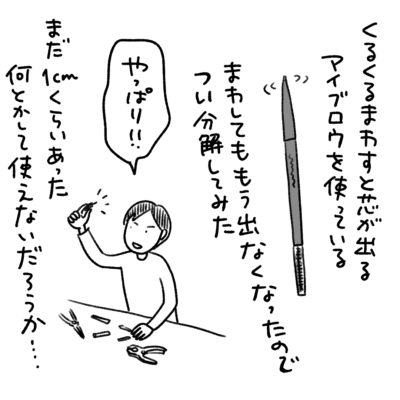 くるくるまわすと芯が出る
アイブロウを使っている
まわしてももう出なくなったので
つい分解してみた
やっぱり!!
まだ1cmくらいあった
何とかして使えないだろうか…